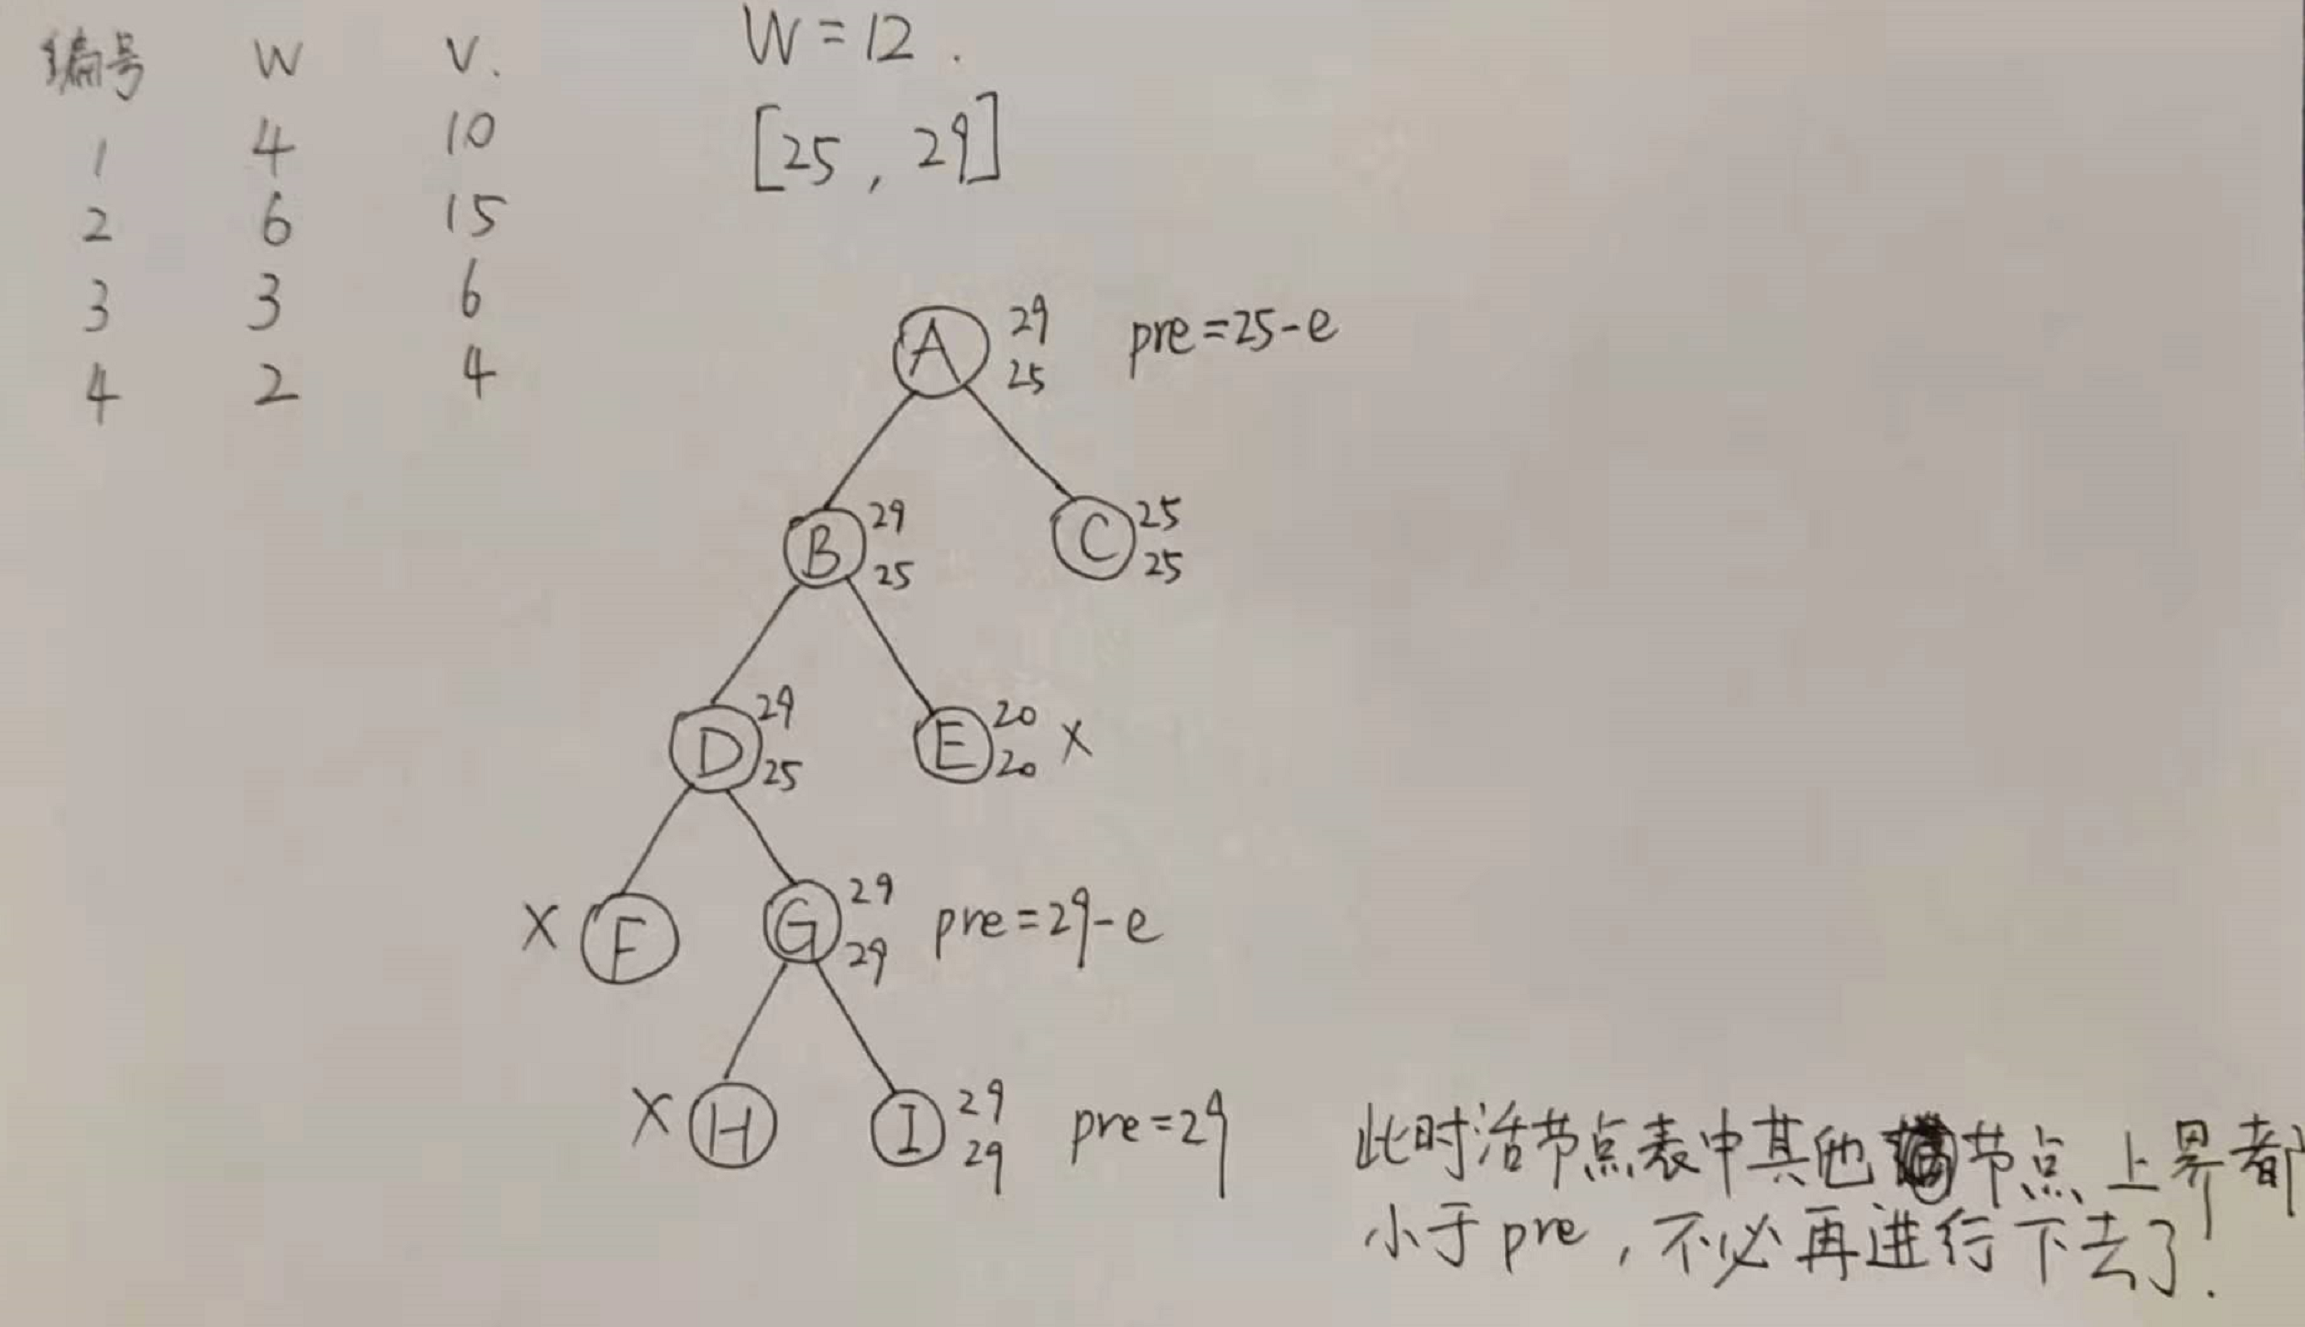 编号 W V.
1 4 10
2 6 15
3 3 6
4 2 4
W=12.
[25, 29]
A 29 25 pre=25-e
B 29 25
C 25 25
D 29 25
E 20 20 X
X F
G 29 29 pre=29-e
X H
I 29 29 pre=29
此时活节点表中其他节点上界都
小于pre,不必再进行下去了.